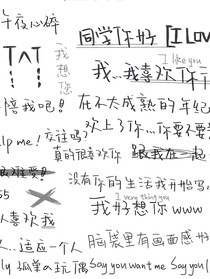 午夜心碎
同学你好 [I Lov
T^T
我想你
I like you
我...我喜欢你
陪我吧!
在不大成熟的年纪
欢上了你...你要不要
lp me! 交往吗?
真的很喜欢你 跟我在一起
没有你的生活我开始写
I very thing you
我好想你 www
人喜欢我
...适应一个人
脑袋里有画面感
ly 孤单の玩偶 Say you want me Say you l